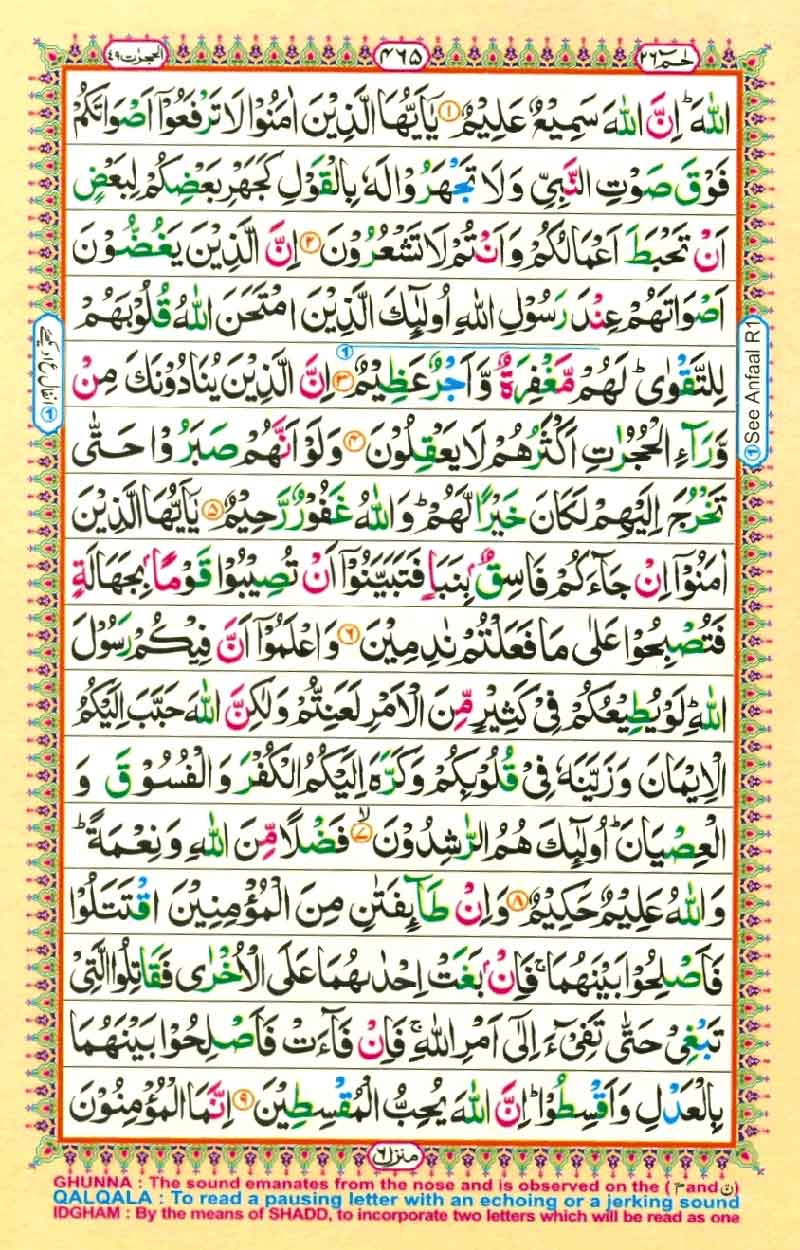 الحجرات ٤٩
٤٦٥
حٰمٓ ٢٦
اللّٰهَ ؕ اِنَّ اللّٰهَ سَمِيْعٌ عَلِيْمٌ ۝۱ يٰۤاَيُّهَا الَّذِيْنَ اٰمَنُوْا لَا تَرْفَعُوْۤا اَصْوَاتَكُمْ
فَوْقَ صَوْتِ النَّبِيِّ وَلَا تَجْهَرُوْا لَهٗ بِالْقَوْلِ كَجَهْرِ بَعْضِكُمْ لِبَعْضٍ
اَنْ تَحْبَطَ اَعْمَالُكُمْ وَاَنْتُمْ لَا تَشْعُرُوْنَ ۝۲ اِنَّ الَّذِيْنَ يَغُضُّوْنَ
اَصْوَاتَهُمْ عِنْدَ رَسُوْلِ اللّٰهِ اُولٰٓئِكَ الَّذِيْنَ امْتَحَنَ اللّٰهُ قُلُوْبَهُمْ
لِلتَّقْوٰى ؕ لَهُمْ مَّغْفِرَةٌ وَّاَجْرٌ عَظِيْمٌ ۝۳ اِنَّ الَّذِيْنَ يُنَادُوْنَكَ مِنْ
وَّرَآءِ الْحُجُرٰتِ اَكْثَرُهُمْ لَا يَعْقِلُوْنَ ۝۴ وَلَوْ اَنَّهُمْ صَبَرُوْا حَتّٰى
تَخْرُجَ اِلَيْهِمْ لَكَانَ خَيْرًا لَّهُمْ ؕ وَاللّٰهُ غَفُوْرٌ رَّحِيْمٌ ۝۵ يٰۤاَيُّهَا الَّذِيْنَ
اٰمَنُوْۤا اِنْ جَآءَكُمْ فَاسِقٌۢ بِنَبَاٍ فَتَبَيَّنُوْۤا اَنْ تُصِيْبُوْا قَوْمًۢا بِجَهَالَةٍ
فَتُصْبِحُوْا عَلٰى مَا فَعَلْتُمْ نٰدِمِيْنَ ۝۶ وَاعْلَمُوْۤا اَنَّ فِيْكُمْ رَسُوْلَ
اللّٰهِ ؕ لَوْ يُطِيْعُكُمْ فِيْ كَثِيْرٍ مِّنَ الْاَمْرِ لَعَنِتُّمْ وَلٰكِنَّ اللّٰهَ حَبَّبَ اِلَيْكُمُ
الْاِيْمَانَ وَزَيَّنَهٗ فِيْ قُلُوْبِكُمْ وَكَرَّهَ اِلَيْكُمُ الْكُفْرَ وَالْفُسُوْقَ وَ
الْعِصْيَانَ ؕ اُولٰٓئِكَ هُمُ الرّٰشِدُوْنَ ۝۷ۙ فَضْلًا مِّنَ اللّٰهِ وَنِعْمَةً ؕ
وَاللّٰهُ عَلِيْمٌ حَكِيْمٌ ۝۸ وَاِنْ طَآئِفَتٰنِ مِنَ الْمُؤْمِنِيْنَ اقْتَتَلُوْا
فَاَصْلِحُوْا بَيْنَهُمَا ۚ فَاِنْۢ بَغَتْ اِحْدٰىهُمَا عَلَى الْاُخْرٰى فَقَاتِلُوا الَّتِيْ
تَبْغِيْ حَتّٰى تَفِيْٓءَ اِلٰۤى اَمْرِ اللّٰهِ ۚ فَاِنْ فَآءَتْ فَاَصْلِحُوْا بَيْنَهُمَا
بِالْعَدْلِ وَاَقْسِطُوْا ؕ اِنَّ اللّٰهَ يُحِبُّ الْمُقْسِطِيْنَ ۝۹ اِنَّمَا الْمُؤْمِنُوْنَ
١ See Anfaal R1
منزل ٦
GHUNNA : The sound emanates from the nose and is observed on the ( م and ن)
QALQALA : To read a pausing letter with an echoing or a jerking sound
IDGHAM : By the means of SHADD, to incorporate two letters which will be read as one